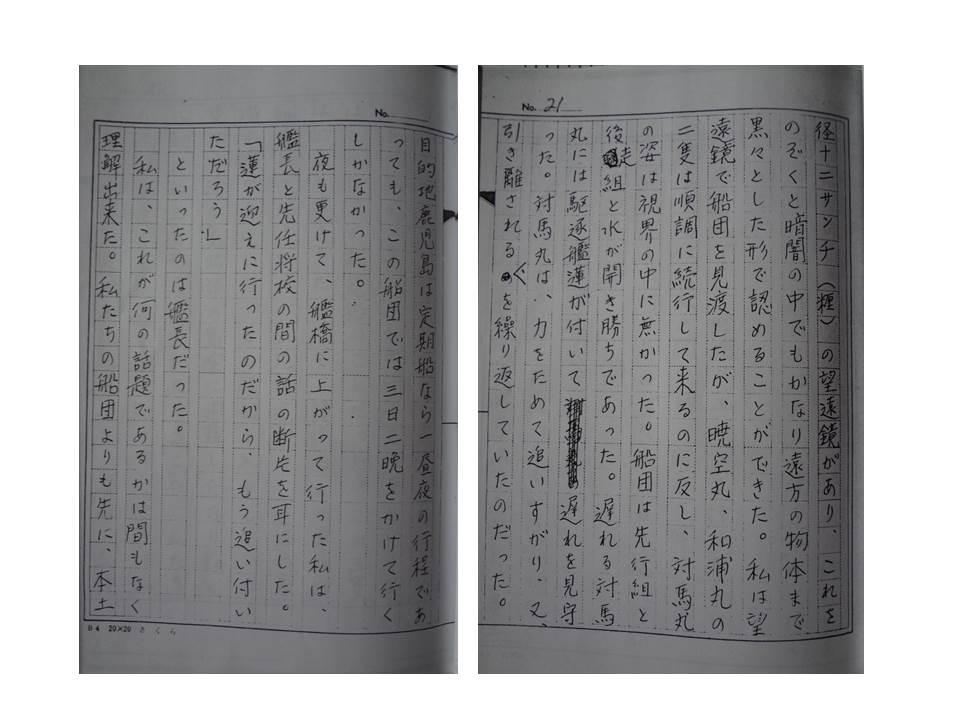 No. 21
径十二サンチ（糎）の望遠鏡があり、これを
のぞくと暗闇の中でもかなり遠方の物体まで
黒々とした形で認めることができた。私は望
遠鏡で船団を見渡したが、暁空丸、和浦丸の
二隻は順調に続行して来るのに反し、対馬丸
の姿は視界の中に無かった。船団は先行組と
後走組と水が開き勝ちであった。遅れる対馬
丸には駆逐艦蓮が付いて遅れを見守
った。対馬丸は、力をためて追いすがり、又、
引き離されるを繰り返していたのだった。
No.
目的地鹿児島は定期船なら一昼夜の行程であ
っても、この船団では三日二晩をかけて行く
しかなかった。
夜も更けて、艦橋に上がって行った私は、
艦長と先任将校の間の話の断片を耳にした。
「蓮が迎えに行ったのだから、もう追い付い
ただろう」
といったのは艦長だった。
私は、これが何の話題であるかは間もなく
理解出来た。私たちの船団よりも先に、本土
B4 20×20 さくら